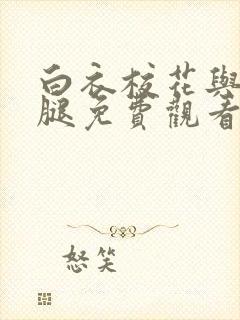 白衣校花與
腿免費觀看
怒笑